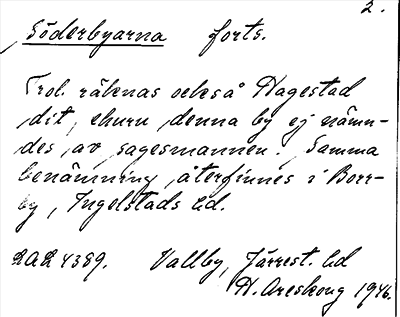 2.
Söderbyarna forts.
Trol. räknas också Hagestad
dit, ehuru denna by ej nämn-
des av sagesmannen. Samma
benämning återfinnes i Borr-
by, Ingelstads hd.
LAL 4389. Vallby, Järrest. hd
H. Areskoug 1946.